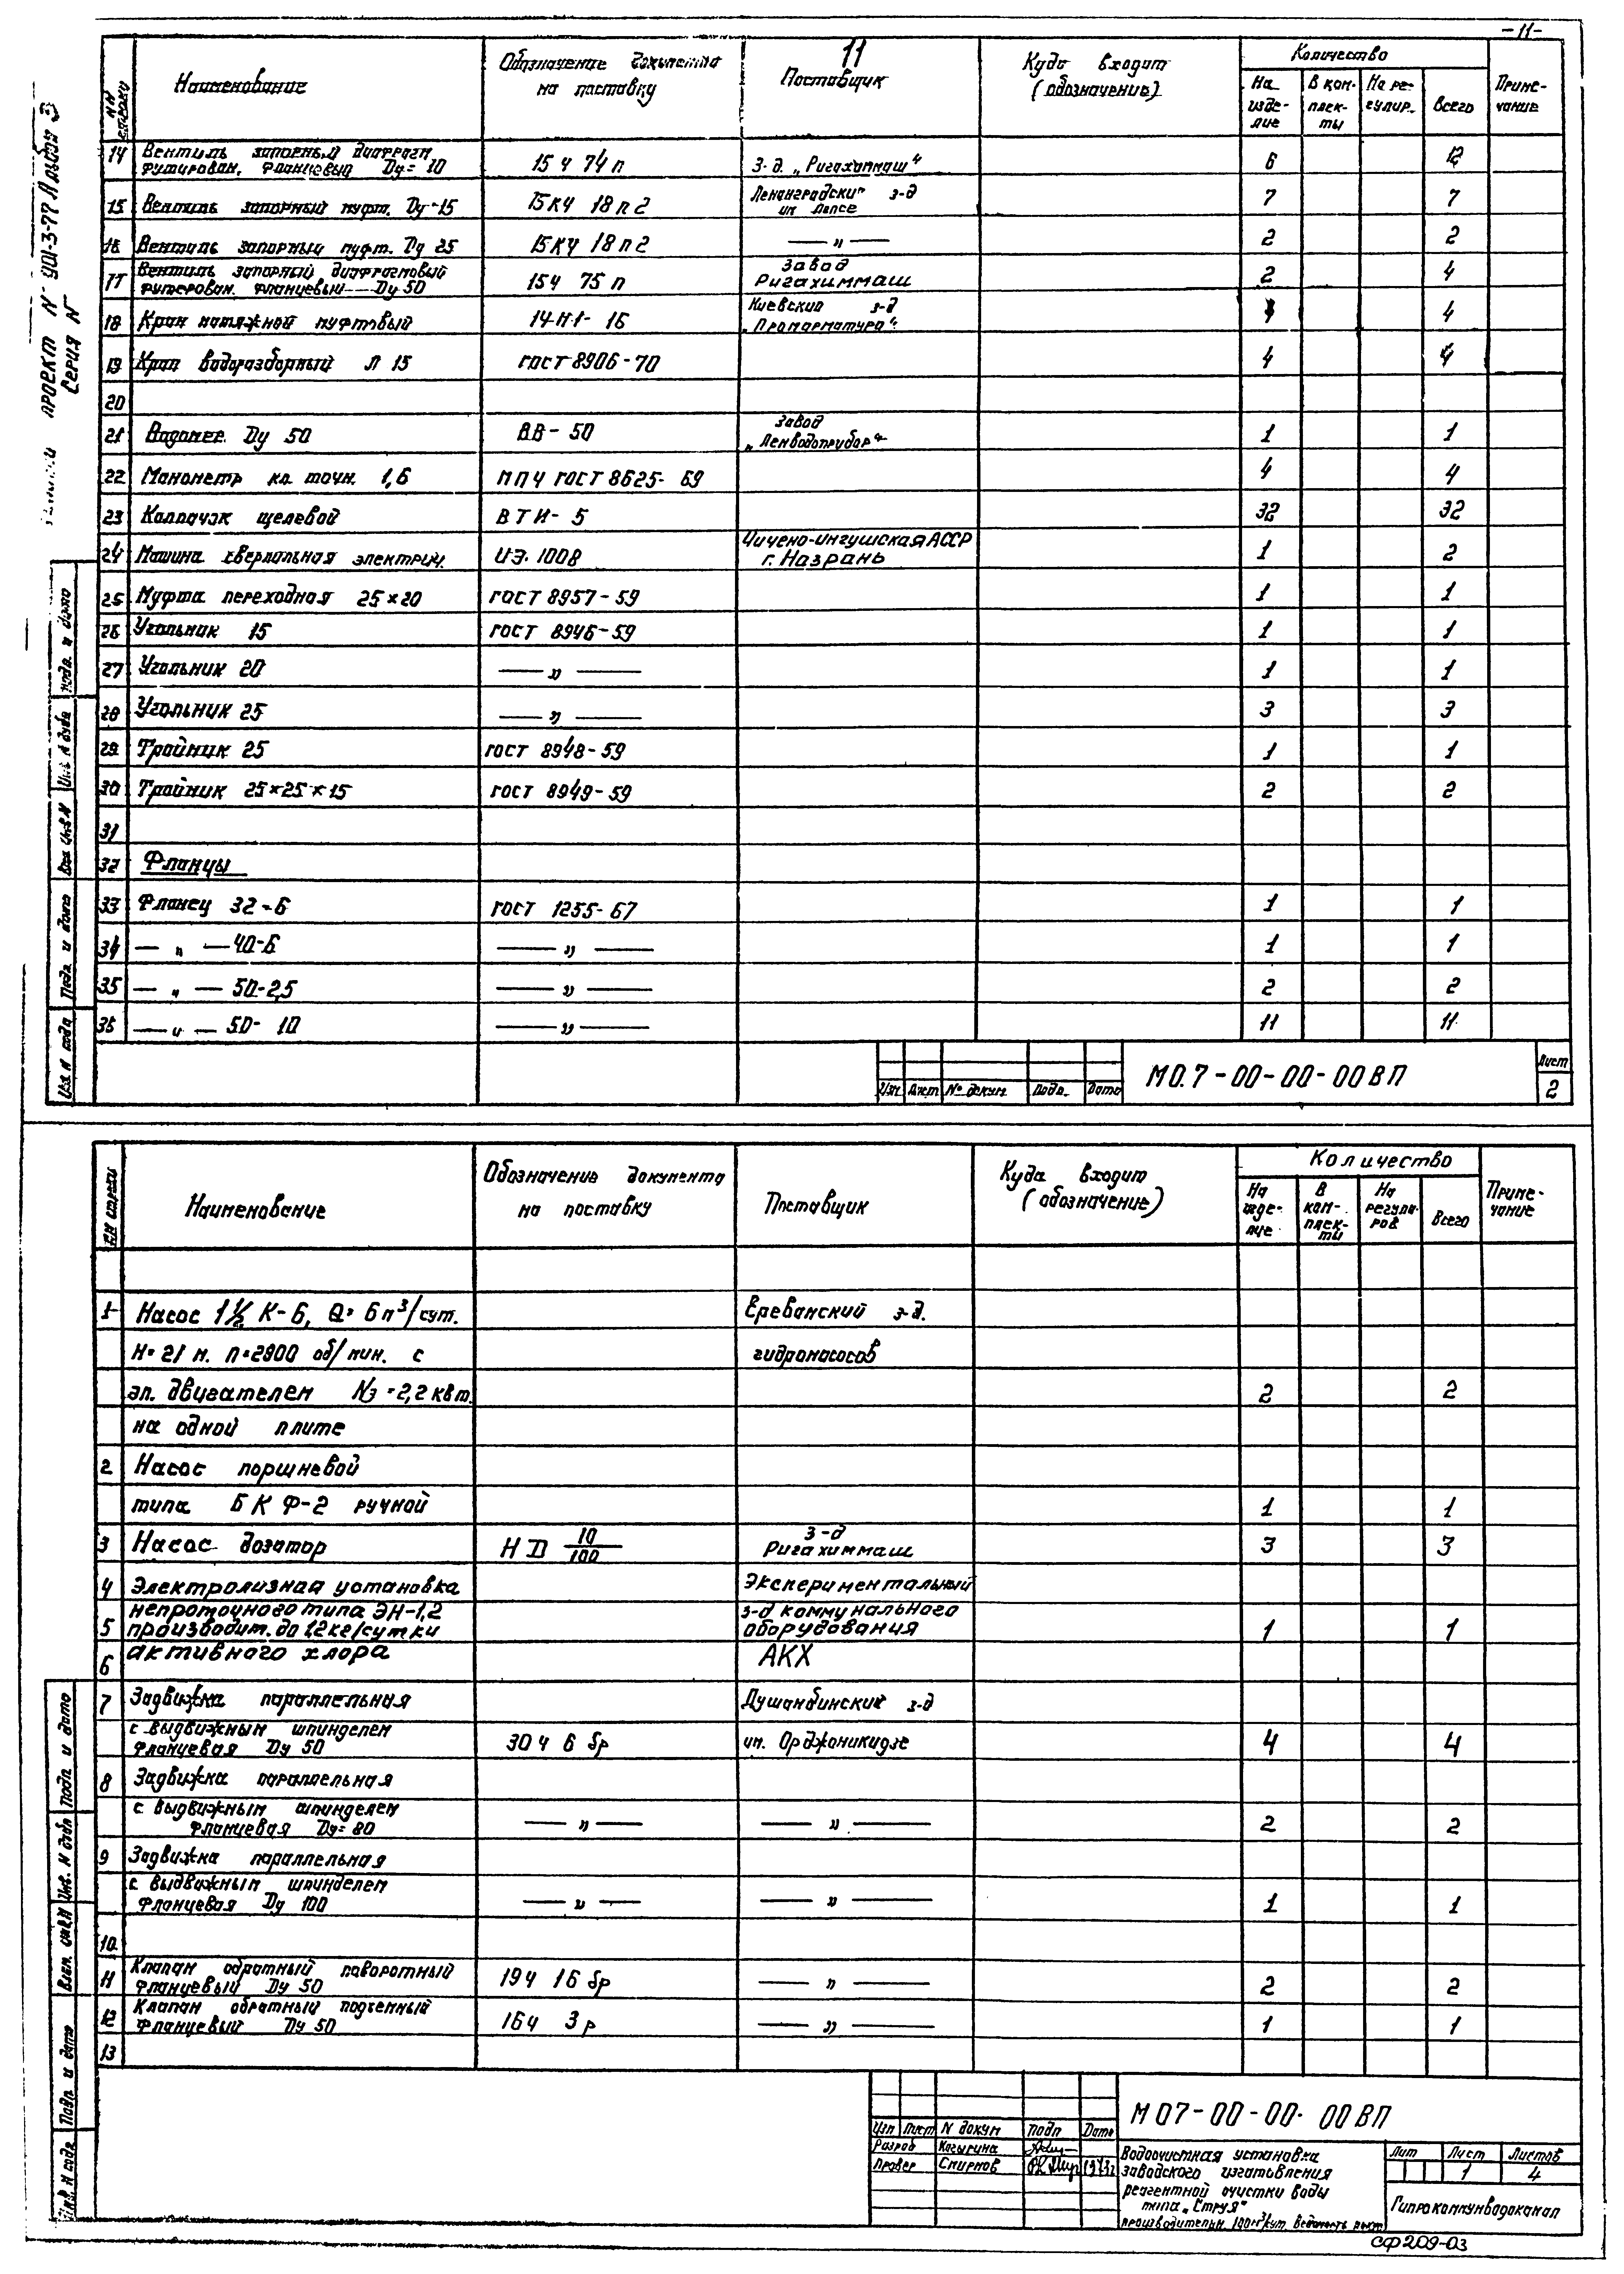 -11-
11
проект N 901-3-77 Альбом 3
Серия N
NN строки | Наименование | Обозначение документа на поставку | Поставщик | Куда входит (обозначение) | Количество | Примечание
На изделие | В комплекты | На регулир. | Всего
14 Вентиль запорный диафрагм футирован. фланцевый Dy=10 | 15 ч 74 п | З-д. „Ригахиммаш“ | 6 | 12
15 Вентиль запорный муфт. Dy-15 | 15кч 18 п 2 | Ленинградский з-д им Лепсе | 7 | 7
16 Вентиль запорный муфт. Dy 25 | 15кч 18 п 2 | — „ — | 2 | 2
17 Вентиль запорный диафрагмовый футерован. фланцевый — Dy 50 | 15ч 75 п | Завод Ригахиммаш | 2 | 4
18 Кран натяжной муфтовый | 14-М1- 16 | Киевский з-д „Промарматура“ | 4
19 Кран водоразборный Л 15 | ГОСТ 8906-70 | 4 | 4
20
21 Водомер Dy 50 | ВВ-50 | Завод „Ленводоприбор“ | 1 | 1
22 Манометр кл точн. 1,6 | МПЧ ГОСТ 8625-69 | 4 | 4
23 Колпачок щелевой | ВТИ-5 | 32 | 32
24 Машина сверлильная электрич. | ИЭ. 1008 | Чичено-ингушская АССР г. Назрань | 1 | 2
25 Муфта переходная 25×20 | ГОСТ 8957-59 | 1 | 1
26 Угольник 15 | ГОСТ 8946-59 | 1 | 1
27 Угольник 20 | — „ — | 1 | 1
28 Угольник 25 | — „ — | 3 | 3
29 Тройник 25 | ГОСТ 8948-59 | 1 | 1
30 Тройник 25×25×15 | ГОСТ 8949-59 | 2 | 2
31
32 Фланцы
33 Фланец 32-6 | ГОСТ 1255-67 | 1 | 1
34 — „ — 40-6 | — „ — | 1 | 1
35 — „ — 50-2,5 | — „ — | 2 | 2
36 — „ — 50-10 | — „ — | 11 | 11
Изм Лист № докум Подп. Дата
М0.7-00-00-00ВП
Лист
2
Инв N подл
Подп. и дата
Вза инв N
Инв N дубл
Подп. и дата
NN строки | Наименование | Обозначение документа на поставку | Поставщик | Куда входит (обозначение) | Количество | Примечание
На изделие | В комплекты | На регулиров | Всего
1 Насос 1½ К-6, Q= 6м³/сут. | Ереванский з-д.
H=21 м. n=2900 об/мин. с | гидронасосов
эл. двигателем Nэ =2,2 квт. | 2 | 2
на одной плите
2 Насос поршневой
типа БКФ-2 ручной | 1 | 1
3 Насос дозатор | НД 10/100 | з-д Ригахиммаш | 3 | 3
4 Электролизная установка | Экспериментальный
5 непроточного типа ЭН-1,2 производит. до 1,2кг/сутки | з-д коммунального оборудования | 1 | 1
6 активного хлора | АКХ
7 Задвижка параллельная | Душанбинский з-д
с выдвижным шпинделем фланцевая Dy 50 | 30ч 6 бр | им. Орджоникидзе | 4 | 4
8 Задвижка параллельная
с выдвижным шпинделем фланцевая Dy= 80 | — „ — | — „ — | 2 | 2
9 Задвижка параллельная
с выдвижным шпинделем фланцевая Dy 100 | — „ — | — „ — | 1 | 1
10.
11 Клапан обратный поворотный фланцевый Dy 50 | 19ч 16 бр | — „ — | 2 | 2
12 Клапан обратный подъемный фланцевый Dy 50 | 16ч 3р | — „ — | 1 | 1
13
Инв N подл
Подп. и дата
Взам. инв N
Инв. N дубл
Подп. и дата
Изм Лист N докум Подп Дата
Разраб Косыгина
Провер Смирнов
М 07-00-00-00ВП
Водоочистная установка
заводского изготовления
реагентной очистки воды
типа „Струя“
производительн. 100м³/сут. Ведомость
Лит Лист Листов
1 4
Гипрокоммунводоканал
СФ 209-03